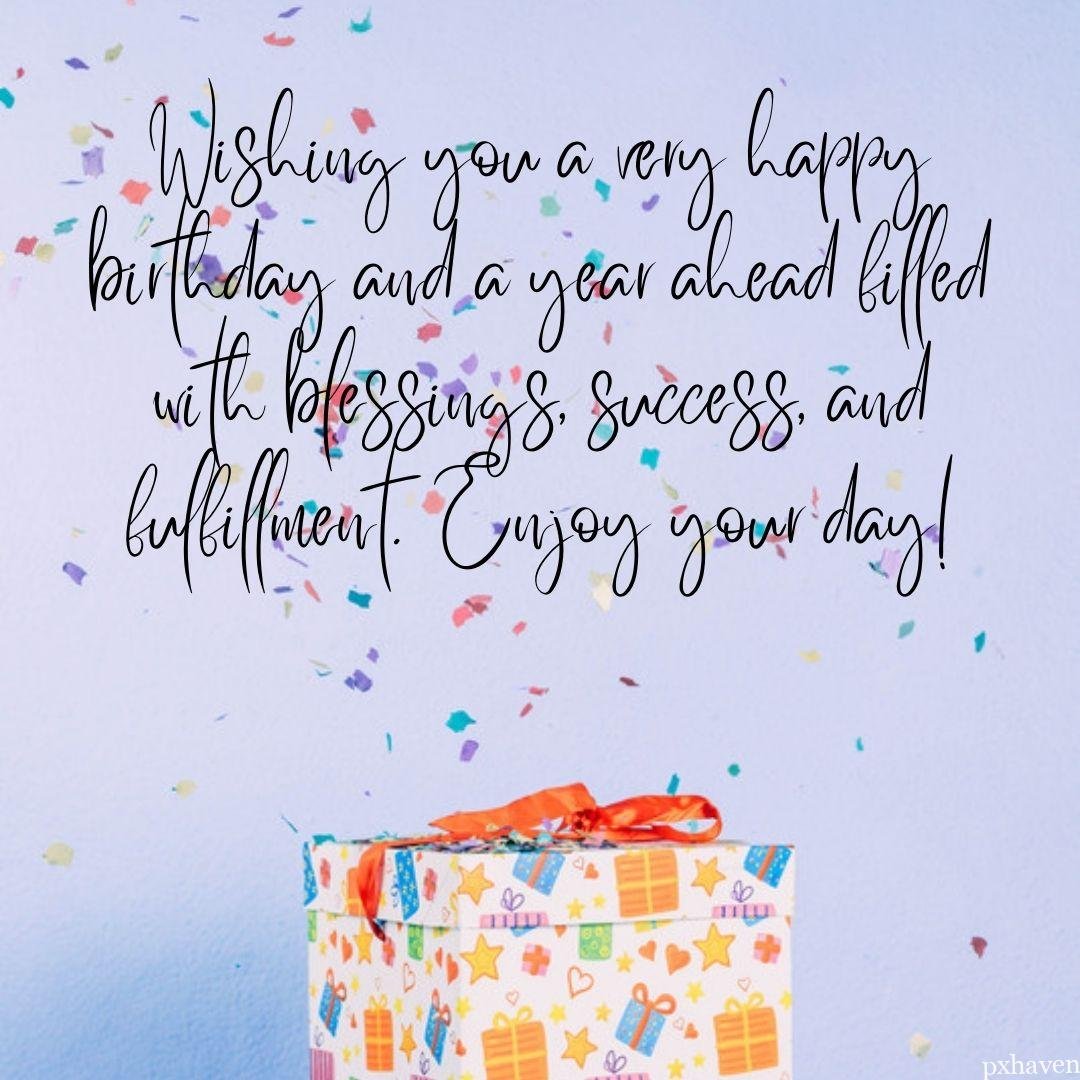 Wishing you a very happy
birthday and a year ahead filled
with blessings, success, and
fulfillment. Enjoy your day!
pxhaven